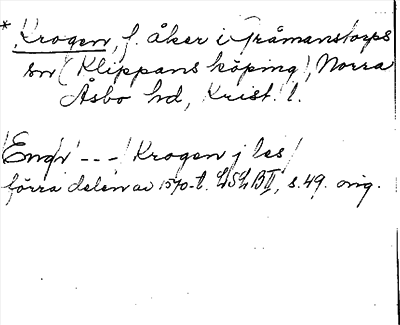 * Krogen, f. åker i Gråmanstorps
sn (Klippans köping), Norra
Åsbo hd, Krist. l.
/Engh --- / Krogen j les/
förra delen av 1570-t. LSLB II, s. 49. orig.